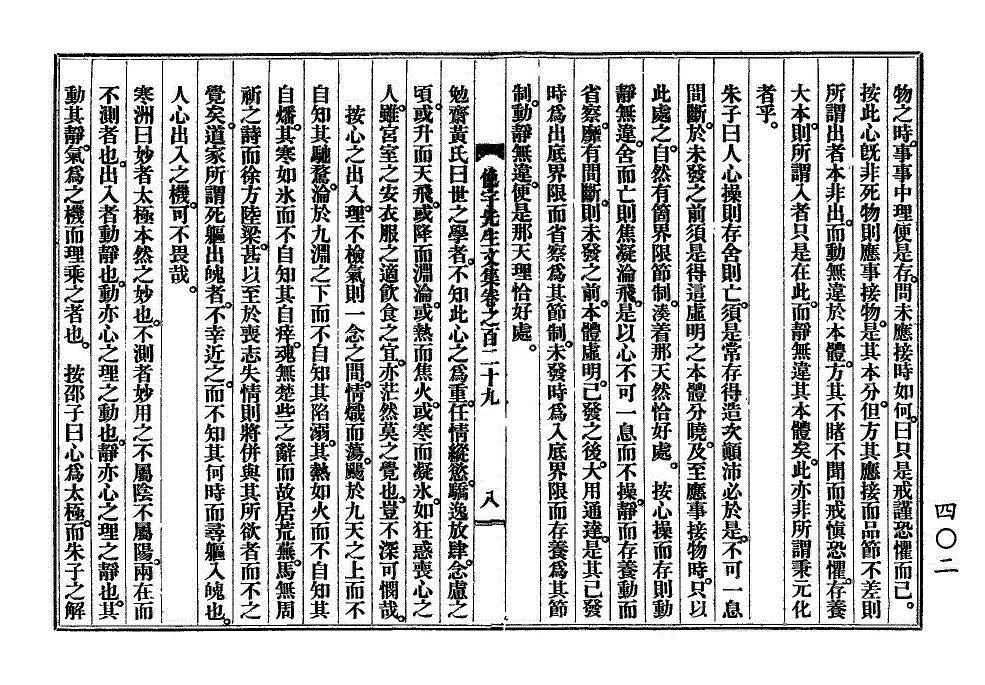 物之時。事事中理便是存。問未應接時如何。曰只是戒謹恐懼而已。
按此心旣非死物則應事接物。是其本分。但方其應接而品節不差則
所謂出者本非出。而動無違於本體。方其不睹不聞而戒愼恐懼。存養
大本。則所謂入者只是在此。而靜無違其本體矣。此亦非所謂秉元化
者乎。
朱子曰人心操則存舍則亡。須是常存得造次顚沛必於是。不可一息
間斷。於未發之前須是得這虛明之本體分曉。及至應事接物時。只以
此處之。自然有箇界限節制。湊着那天然恰好處。 按心操而存則動
靜無違。舍而亡則焦凝淪飛。是以心不可一息而不操。靜而存養動而
省察。靡有間斷。則未發之前。本體虛明。已發之後。大用通達。是其已發
時爲出底界限而省察爲其節制。未發時爲入底界限而存養爲其節
制。動靜無違。便是那天理恰好處。
俛宇先生文集卷之百二十九 八
勉齋黃氏曰世之學者。不知此心之爲重。任情縱慾。驕逸放肆。念慮之
頃。或升而天飛。或降而淵淪。或熱而焦火。或寒而凝氷。如狂惑喪心之
人。雖宮室之安衣服之適飮食之宜。亦茫然莫之覺也。豈不深可憫哉。
按心之出入。理不檢氣則一念之間。情熾而蕩。颺於九天之上而不
自知其馳騖。淪於九淵之下而不自知其陷溺。其熱如火而不自知其
自燔。其寒如氷而不自知其自痒。魂無楚些之辭而故居荒蕪。馬無周
祈之詩而徐方陸梁。甚以至於喪志失情則將倂與其所欲者而不之
覺矣。道家所謂死軀出魄者。不幸近之。而不知其何時而尋軀入魄也。
人心出入之機。可不畏哉。
寒洲曰妙者太極本然之妙也。不測者妙用之不屬陰不屬陽。兩在而
不測者也。出入者動靜也。動亦心之理之動也。靜亦心之理之靜也。其
動其靜。氣爲之機而理乘之者也。 按邵子曰心爲太極。而朱子之解
四〇二